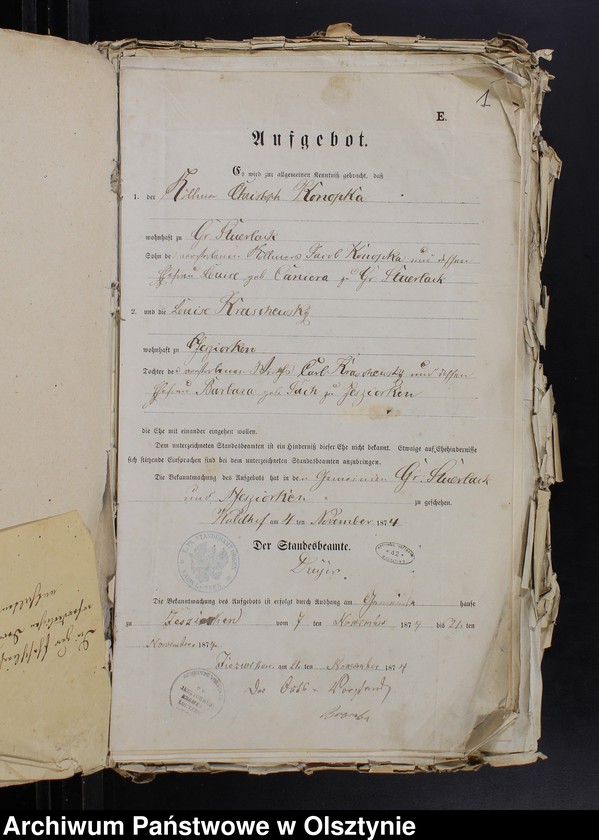 1
E.
Aufgebot.
Es wird zur allgemeinen Kenntniß gebracht, daß
1. der Köllmer Christoph Konopka
wohnhaft zu Gr Stuerlack
Sohn des verstorbenen Köllmers Jacob Konopka und dessen
Ehefrau Louise geb Caniera zu Gr Stuerlack
2. und die Louise Kraschewsky
wohnhaft zu Jesziorken
Tochter des verstorbenen Wirths Carl Kraschewsky und dessen
Ehefrau Barbara geb Sach zu Jesziorken
die Ehe mit einander eingehen wollen.
Dem unterzeichneten Standesbeamten ist ein Hinderniß dieser Ehe nicht bekannt. Etwaige auf Ehehindernisse
sich stützende Einsprachen sind bei dem unterzeichneten Standesbeamten anzubringen.
Die Bekanntmachung des Aufgebots hat in den Gemeinden Gr. Stuerlack
und Jesziorken zu geschehen.
Waldhof am 4 ten November 1874
Der Standesbeamte.
42
Die Bekanntmachung des Aufgebots ist erfolgt durch Aushang am Gemeinde hause
zu vom 7 ten November 1874 bis 21. ten
November 1874
am 21 ten November 1874
Der Orts-Vorstand
Archiwum Państwowe w Olsztynie